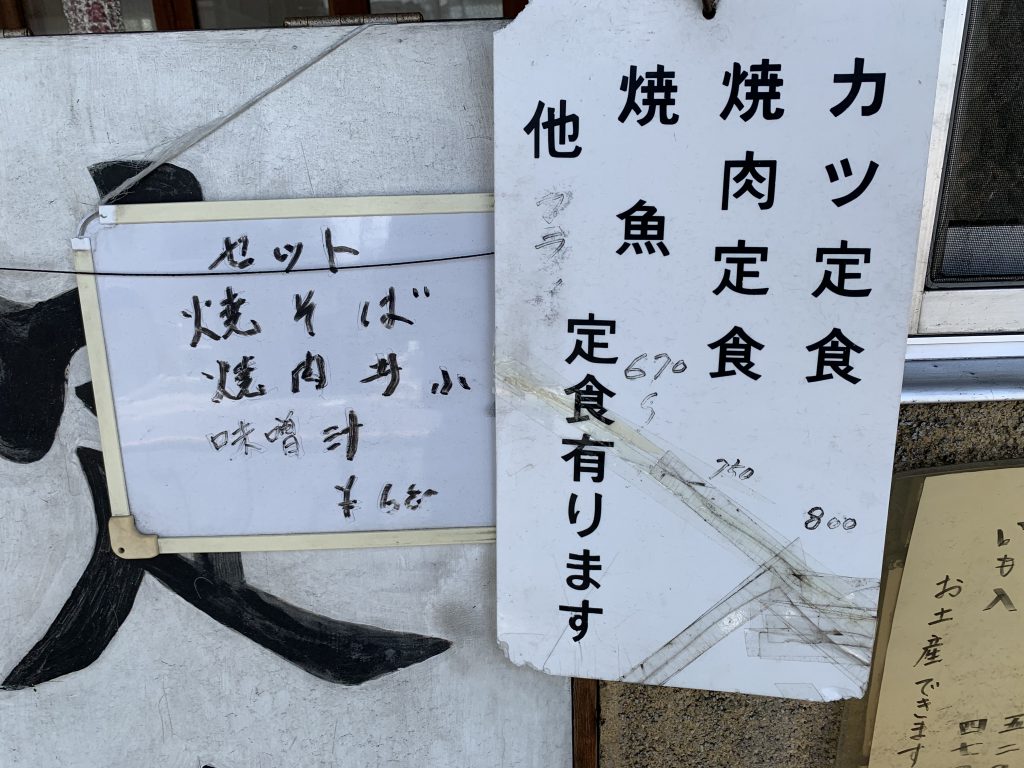 カツ定食
800
焼肉定食
750
焼魚
670
他
定食有ります
セット
焼そば
焼肉丼小
味噌汁
いも入
お土産できます